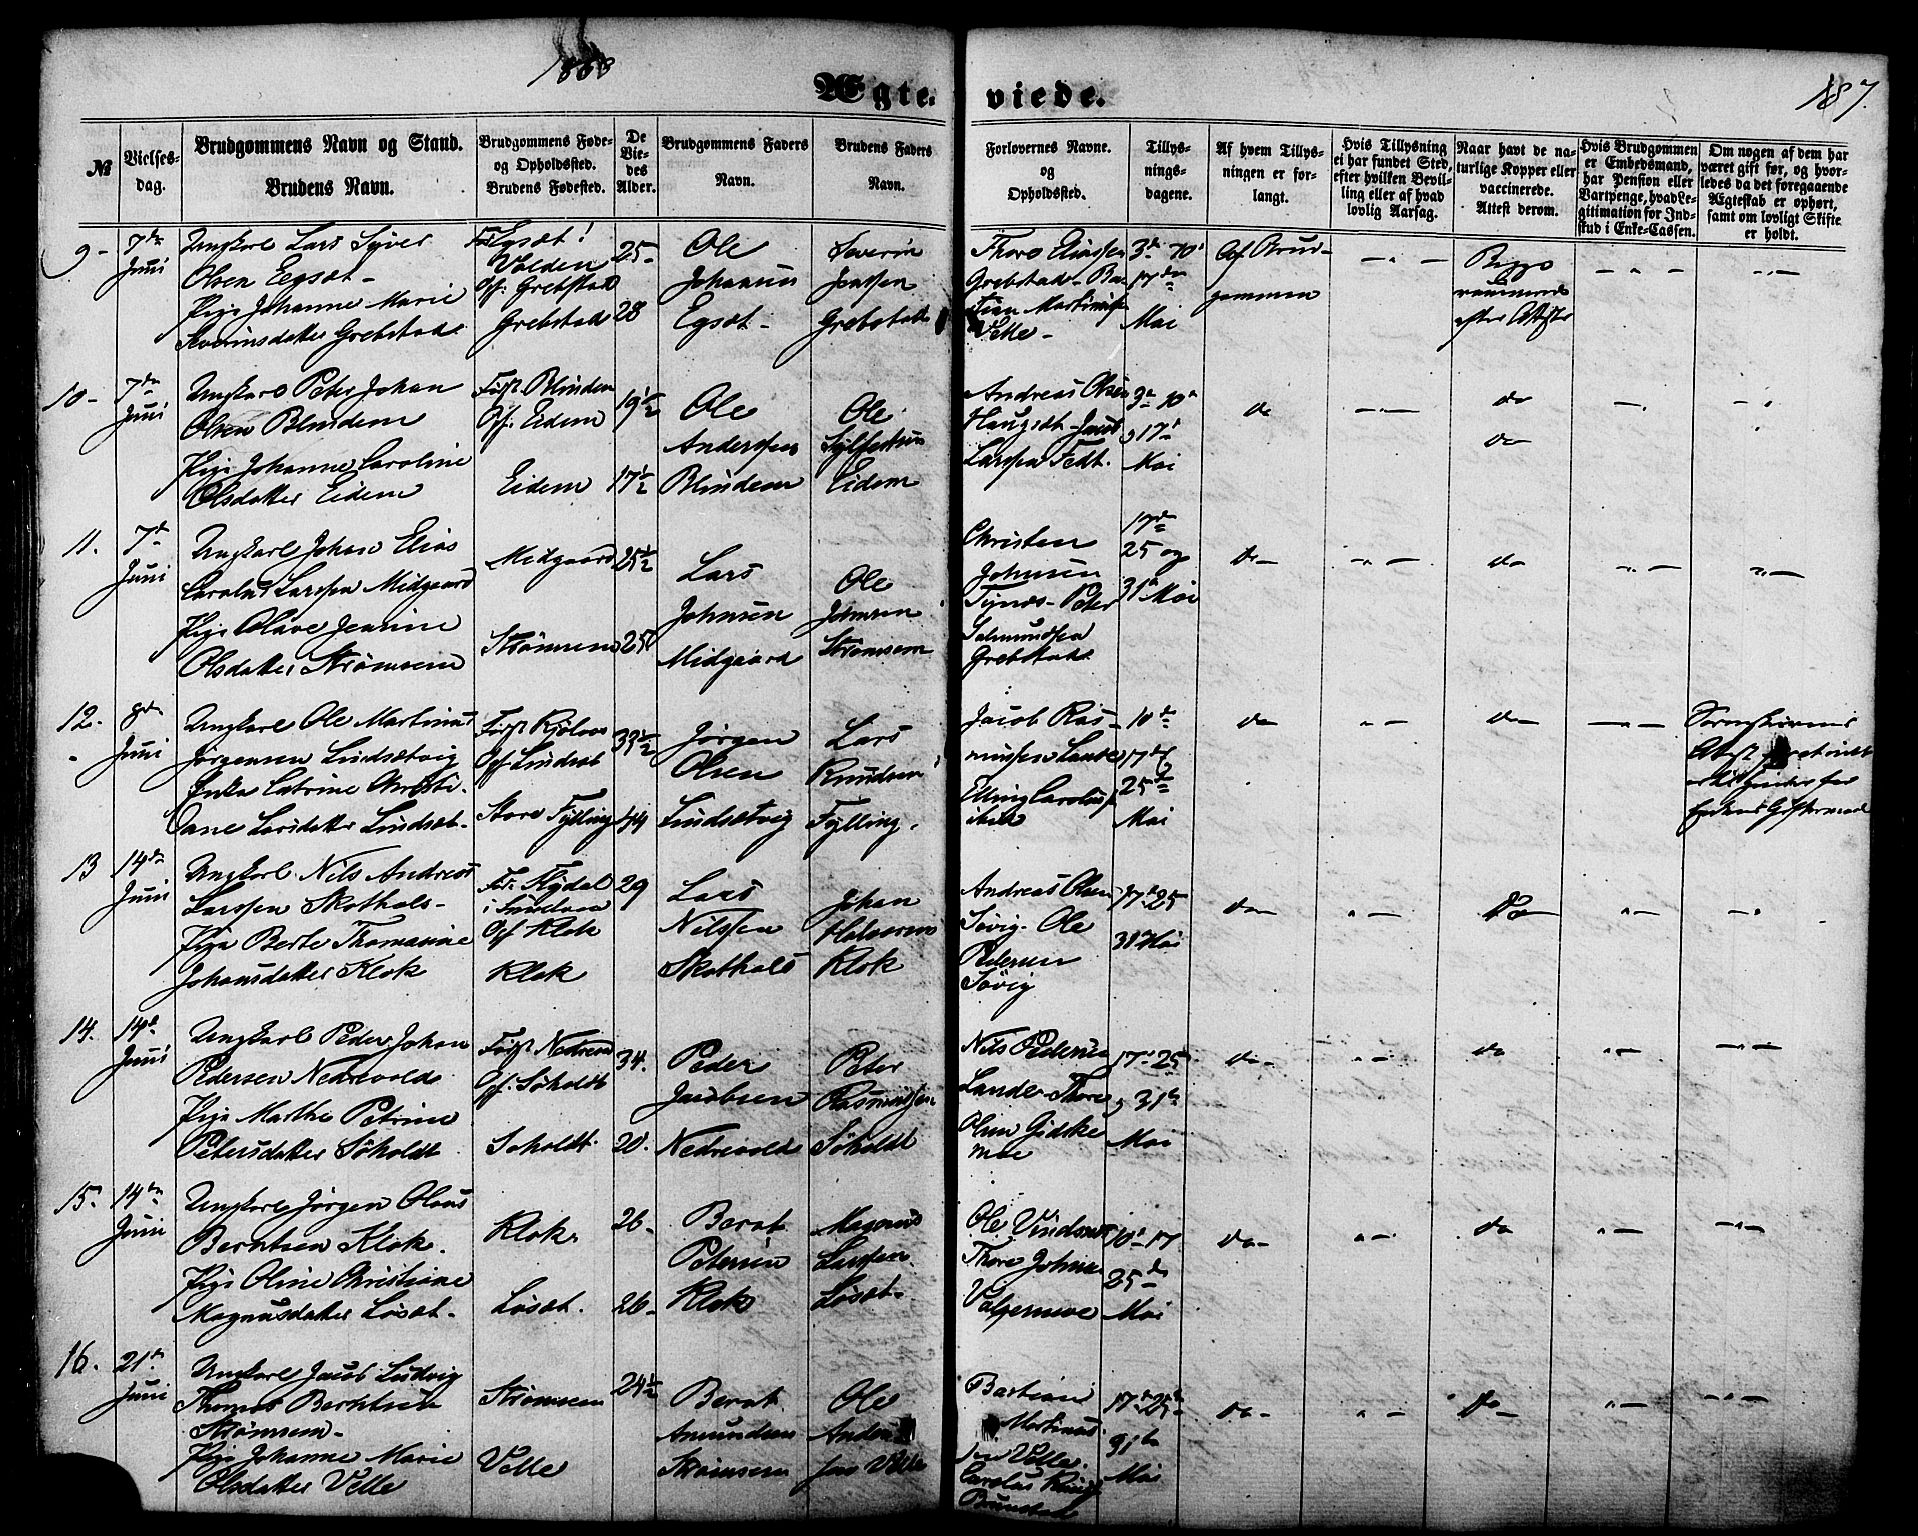 1868
Ægte-
viede.
187.
№
Vielses-
dag.
Brudgommens Navn og Stand.
Brudens Navn.
Brudgommens Føde-
og Opholdssted.
Brudens Fødested.
De
Vie-
des
Alder.
Brudgommens Faders
Navn.
Brudens Faders
Navn.
Forlovernes Navne.
og
Opholdssted.
Tillys-
nings-
dagene.
Af hvem Tillys-
ningen er for-
langt.
Hvis Tillysning
ei har fundet Sted,
efter hvilken Bevil-
ling eller af hvad
lovlig Aarsag.
Naar havt de na-
turlige Kopper eller
vaccinerede.
Attest derom.
Hvis Brudgommen
er Embedsmand,
har Pension eller
Vartpenge, hvad Le-
gitimation for Ind-
skud i Enke-Cassen.
Om nogen af dem har
været gift før, og hvor-
ledes da det foregaaende
Ægteskab er ophørt,
samt om lovligt Skifte
er holdt.
9-
7de
Juni
Ungkarl Lars Syver
Olsen Egsæt-
Pige Johanne Marie
Severinsdatter Grebstad
Egsæt
Volden
Opf. Grebstad
Grebstad
25-
28
Ole
Johannes
Egsæt-
Severin
Jensen
Grebstad
Thore Eliassen
Grebstad- Ba-
stian Martinus
Velle-
3die 10de
17de
Mai
Af Brud-
gommen
Begge
vaccinerede
efter Attester
10-
7de
Juni
Ungkarl Peter Johan
Olsen Blindem
Pige Johanne Caroline
Olsdatter Eidem
Født Blindem
Opf. Eidem
Eidem
19 1/2
17 1/2
Ole
Anderssen
Blindem
Ole
Eidem
Andreas Olsen
Haugsdt- Jacob
Larssen Fedt.
3de 10de
og 17de
Mai
do
do
do
11.
7de
Juni
Ungkarl Johan Elias
Carolus Larssen Midgaard
Pige Olave Jensine
Olsdatter Strømsem
Midgaard
Strømsem
25 1/2
25
Lars
Johnsen
Midgaard
Ole
Johnsen
Strømsem
Christen
Johnsen
Tynæs- Peter
Salmundsen
Grebstad
17de
25 og
31te Mai
do-
do
12.
8de
Juni
Ungkarl Ole Martinus
Jørgensen Lindsætvig
Enke Catrine Christi-
ane Larsdatter Lindsæt-
Opf Lindsæt
Store Fylling
33 1/2
44
Jørgen
Olsen
Lindsætvig
Lars
Knudsen
Fylling.
Jacob Ras-
mussen Lande
Elling Carolus
ibid
10de
17de
25de
Mai
do
do-
13
14de
Juni
Ungkarl Nils Andreas
Larssen Skothols-
Pige Berte Thomasine
Johansdatter Klok
Fød. Flydal
Opf Klok
Klok
29
Lars
Nilssen
Skothols
Johan
Halvorsen
Klok
Andreas Olsen
Søvig. Ole
Pedersen
Søvig
17de 25
31 Mai
do-
Do-
14.
14de
Juni
Ungkarl Peder Johan
Pedersen Nedrevold
Pige Marthe Petrine
Petersdatter Søholdt
Født Nedrevold
Opf. Søholdt
Søholdt.
34.
20.
Peder
Jacobsen
Nedrevold
Peter
Rasmussen
Søholdt
Nils Pedersen
Lande- Thore
Olsen Gidske
moe
17de 25
og 31te
Mai
do-
do
15.
14de
Juni
Ungkarl Jørgen Olaus
Berntsen Klok.
Pige Oline Christiane
Magnusdatter Løsæt-
Klok
Løsæt.
26-
26-
Bernt
Petersen
Klok
Magnus
Larssen.
Løsæt-
Ole Vindsnæs
Thore Johnsen
Valgermoe
10de 17
25de
Mai
do-
do
16.
21de
Juni
Ungkarl Jacob Ludvig
Thomas Berntsen
Strømsem-
Pige Johanne Marie
Olsdatter Velle
Strømsem
Velle
24 1/2
Bernt
Amundsen
Strømsem
Ole
Anders
sen Velle
Bastian
Martinus
sen Velle.
Carolus
17de 25de
31te
Mai
do-
Do-